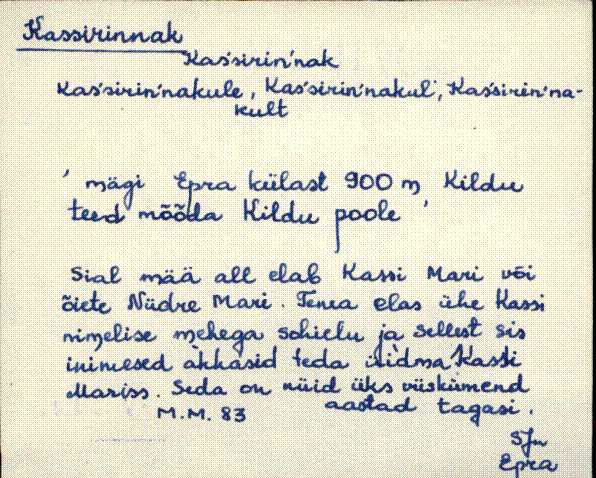 Kassirinnak
Kas'sirin'nak
Kas'sirin'nakule, Kas'sirin'nakul', Kas'sirin'na-
kult
' mägi Epra külast 900 m Kildu
teed mõõda Kildu poole '
Sial mää all elab Kassi Mari või
õiete Nüdre Mari. Tema elas ühe Kassi
nimelise mehega sohielu ja sellest sis
inimesed akkasid teda üidma Kassi
Mariss. Seda on nüid üks viiskümend
aastad tagasi.
M.M. 83
SJn
Epra